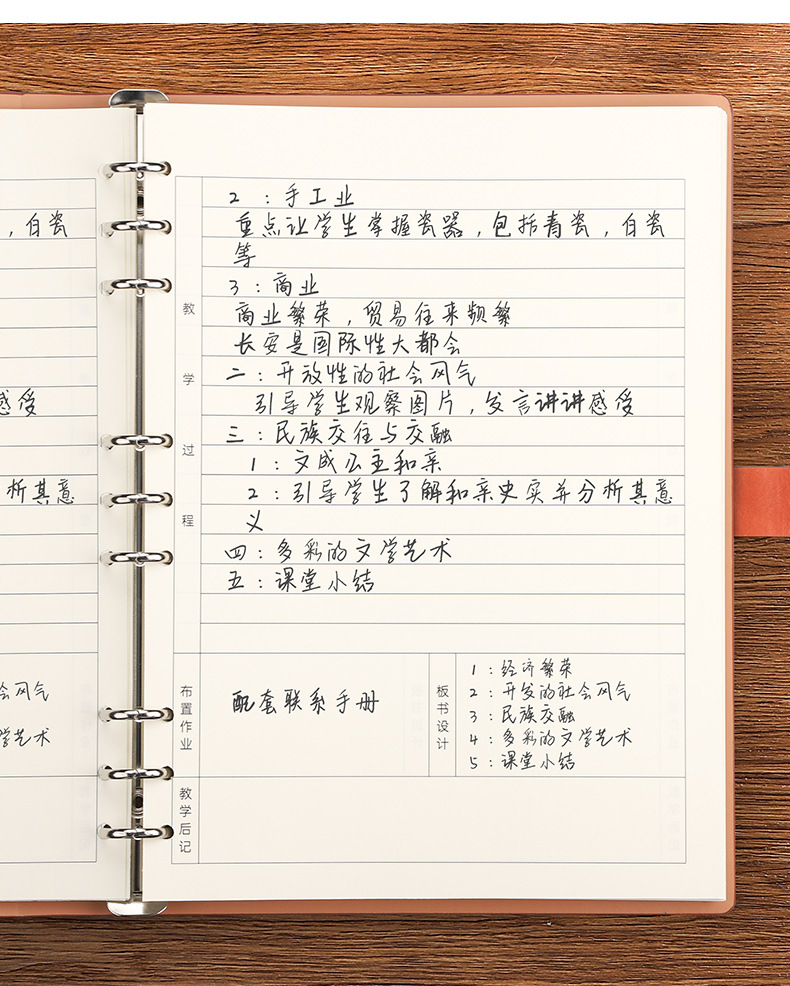 ，白瓷
感受
析其意
会风气
学艺术
教学过程
2：手工业
重点让学生掌握瓷器，包括青瓷，白瓷
等
3：商业
商业繁荣，贸易往来频繁
长安是国际性大都会
二：开放性的社会风气
引导学生观察图片，发言讲讲感受
三：民族交往与交融
1：文成公主和亲
2：引导学生了解和亲史实并分析其意
义
四：多彩的文学艺术
五：课堂小结
布置作业
配套联系手册
板书设计
1：经济繁荣
2：开发的社会风气
3：民族交融
4：多彩的文学艺术
5：课堂小结
教学后记